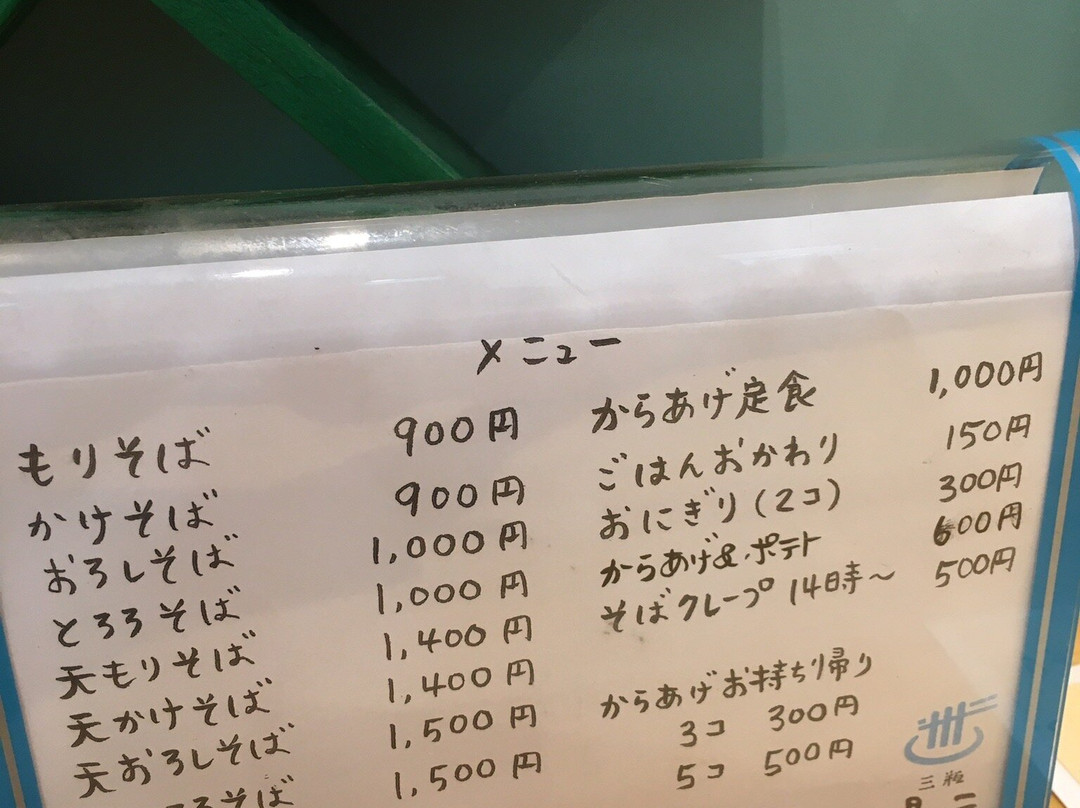 メニュー
もりそば 900円
かけそば 900円
おろしそば 1,000円
とろろそば 1,000円
天もりそば 1,400円
天かけそば 1,400円
天おろしそば 1,500円
ろそば 1,500円
からあげ定食 1,000円
ごはんおかわり 150円
おにぎり(2コ) 300円
からあげ&ポテト 600円
そばクレープ 14時〜 500円
からあげお持ち帰り
3コ 300円
5コ 500円
三瓶